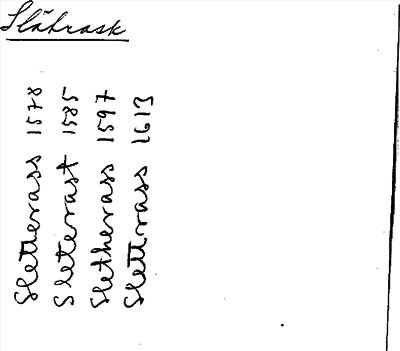 Slåhrask
Sletterass 1578
Sleterast 1585
Sletherass 1597
Slettrass 1613